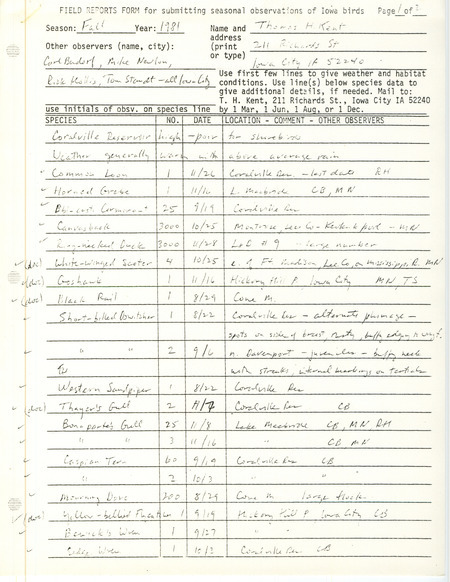 FIELD REPORTS FORM for submitting seasonal observations of Iowa birds Page 1 of
Season: Fall Year: 1981 Name and Thomas H Kent
address
Other observers (name, city): (print 211 Richards St
or type) Iowa City IA 52240
Mike Newlon,
Rick Hollis, Tom - all Iowa City
Use first few lines to give weather and habitat
conditions. Use line(s) below species data to
give additional details, if needed. Mail to:
T. H. Kent, 211 Richards St., Iowa City IA 52240
use initials of obsv. on species line by 1 Mar, 1 Jun, 1 Aug, or 1 Dec.
SPECIES NO. DATE LOCATION - COMMENT - OTHER OBSERVERS
Coralville Reservoir high - poor for shorebirds
Weather generally warm with above average rain
Common Loon 1 11/26 Coralville Res - last date RH
Horned Grebe 1 11/16 L. Macbride CB, MN
Cormorant 25 9/19 Coralville Res
Canvasback 3000 10/25 Montrose, Lee Co - MN
Ring-necked Duck 3000 11/28 L&D #9 - large number
(doc) White-winged Scoter 4 10/25 e. of Ft. Madison, Lee Co, on Mississippi R MN
(doc) Goshawk 1 11/16 Hickory Hill P, Iowa City MN TS
(doc) Black Rail 1 8/29 Cone M.
Short-billed Dowitcher 1 8/22 Coralville Res - alternate plumage -
spots on side of breast, rusty, buffy edging
" " 2 9/6 n. Davenport - juveniles - buffy neck
with streaks, internal markings on tertials
Western Sandpiper 1 8/22 Coralville Res
(doc) Thayer's Gull 2 11/7 Coralville Res CB
Bonaparte's Gull 25 11/8 Lake Macbride CB, MN RH
" " 3 11/26 " CB MN
Caspian Tern 60 9/19 Coralville Res CB
" " 2 10/3 " "
Mourning Dove 200 8/29 Cone M large flock
(doc) Yellow-bellied Flycatcher 1 9/19 Hickory Hill P, Iowa City CB
Bewick's Wren 1 9/27 "
Sedge Wren 1 10/3 Coralville Res CB